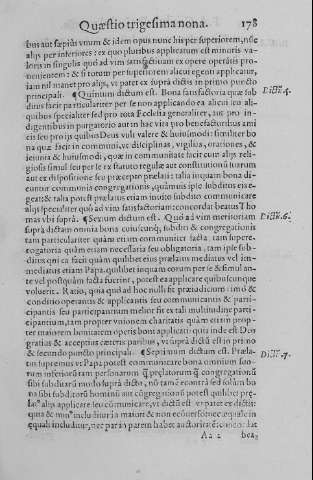 Quæstio trigesima nona. 178
bus aut sæpius vnum & idem opus nunc his per superiorem, nũc
alijs per inferiores: ex quo pluribus applicatum est minoris va-
loris in singulis quo ad vim satisfactiuam ex opere operatis pro-
uenientem: & si totum per superiorem alicui egenti applicatur,
iam nil manet pro alijs, vt patet ex supra dictis in primo puncto
principali. ¶ Quintum dictum est. Bona satisfactoria quæ sub
Dictũ. 5.
diues facit particulariter per se non applicando ea alicui seu ali-
quibus specialiter sed pro tota Ecclesia generaliter, aut pro in-
digentibus in purgatorio aut in hac vita pro benefactoribus ami
cis seu pro ijs quibus Deus vult valere & huiusmodi: similiter bo
na quæ facit in communi, vt disciplinas, vigilias, orationes, &
ieiunia & huiusmodi, quæ in communitate facit cum alijs reli-
giosis simul seu per se ex statuto regulæ aut constitutionũ suarum
aut ex dispositione seu præcepto prælati: talia inquam bona di-
cuntur communia congregationis, quamuis ipse subditus ea e-
geat: & talia potest prælatus etiam inuito subdito communicare
alijs specialiter quo ad vim satisfactoriam: concordat beatus Tho
mas vbi supra. ¶ Sextum dictum est. Quo ad vim meritoriam
Dictũ. 6.
supra dictam omnia bona cuiuscunq; subditi & congregationis
tam particulariter quàm etiam communiter facta, tam supere-
rogatoria quàm etiam necessaria seu obligatoria, tam ipse sub-
ditus qui ea facit quàm quilibet eius prælatus mediatus vel im-
mediatus etiam Papa, quilibet inquam eorum per se & simul an-
te vel postquam facta fuerint, potest ea applicare quibuscumque
voluerit. Ratio, quia quo ad hoc nulli fit præiudicium: imò &
conditio operantis & applicantis seu communicantis & parti-
cipantis seu participantium melior fit ex tali multitudine parti-
cipantium, tam propter vnionem charitatis quàm etiam prop-
ter maiorem bonitatem operis boni applicati: quia inde est Deo
gratius & acceptius cæteris paribus, vt supra dictũ est in primo
& secundo puncto principali. ¶ Septimum dictum est. Præla-
Dictũ. 7.
tus supremus vt Papa potest communicare bona omnium suo-
rum inferiorũ tam personarum q̃ prælatorum q̃ congregationũ
sibi subditarũ modo supra dicto, nõ tamẽ econtra sed solùm bo
na sibi subditorũ hominũ aut cõgregationũ potest quilibet præ-
latus alijs applicare seu cõmunicare, vt dictũ est: vt patet ex dictis:
quia & minus includitur in maiori & non econuerso: nec æquale in
equali includitur, nec par in parem habet auctoritatẽ: concordat
Aa 2 bea-